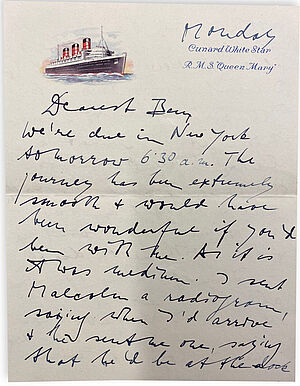 Monday
Cunard White Star
R.M.S. "Queen Mary"
Dearest Ben
We're due in New York
tomorrow 6'30 a.m. The
journey has been extremely
smooth & would have
been wonderful if you'd
been with me. As it is
it was medium. I sent
Malcolm a radiogram,
saying when I'd arrive
& he sent me one, saying
that he'd be at the dock